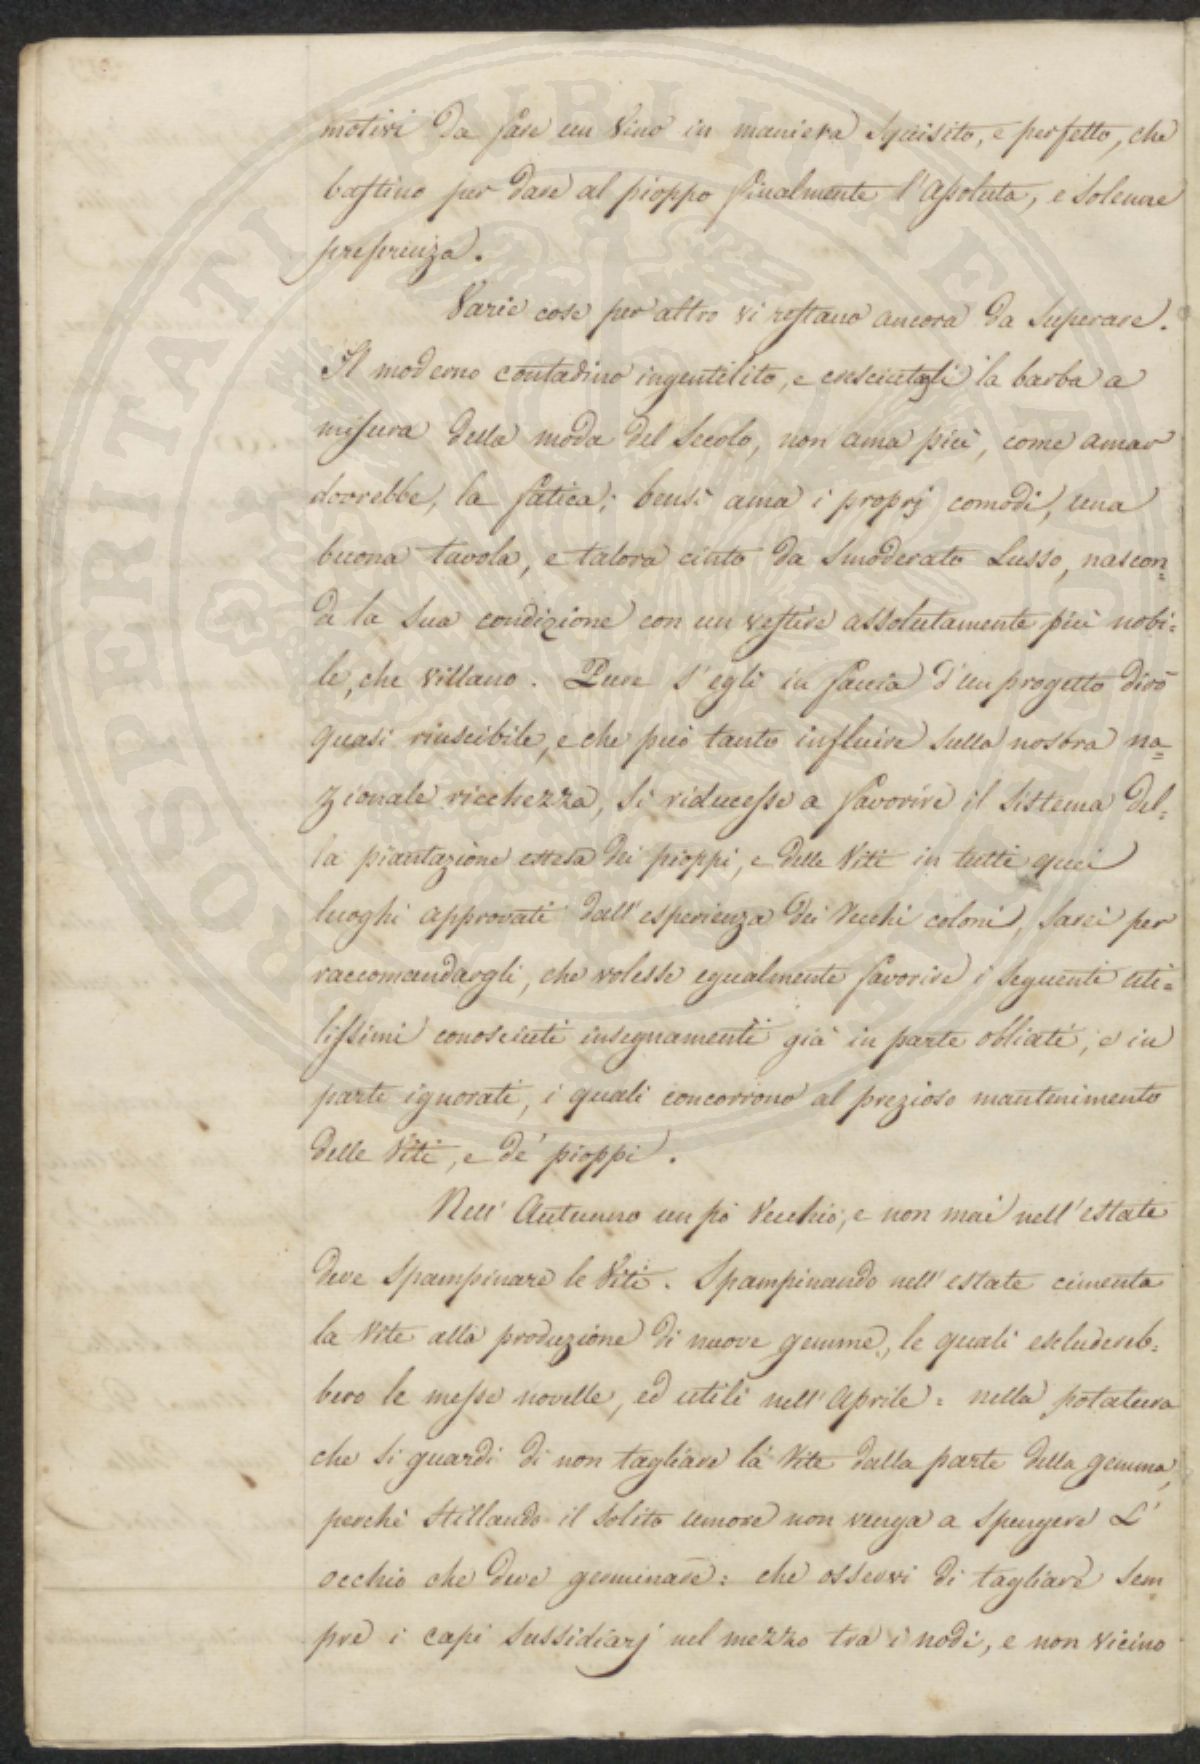 motivi da fare un Vino in maniera Squisito, e perfetto, che
bastino per dare al pioppo finalmente l'Assoluta, e Solenne
preferenza.
Varie cose per altro vi restano ancora da Superare.
Il moderno contadino ingentilito, e cresciutagli la barba a
misura della moda del Secolo, non ama più, come amar
dovrebbe, la fatica; bensì ama i proprj comodi, una
buona tavola, e talora cinto da Smoderato Lusso, nascon=
de la Sua condizione con un vestire assolutamente più nobi=
le, che Villano. Pure s'egli in faccia d'un progetto dirò
quasi riuscibile, e che può tanto influire Sulla nostra na=
zionale ricchezza, Si riducesse a favorire il Sistema del=
la piantazione estesa dei pioppi, e delle Viti in tutti quei
luoghi approvati dall'esperienza dei Vecchi coloni, Sarei per
raccomandargli, che volesse egualmente favorire i Seguenti uti=
lissimi conosciuti insegnamenti già in parte obliati, e in
parte ignorati, i quali concorrono al prezioso mantenimento
delle Viti, e de' pioppi.
Nell'Autunno un pò Vecchio, e non mai nell'estate
deve Spampinare le Viti. Spampinando nell'estate cimenta
la Vite alla produzione di nuove gemme, le quali escludereb=
bero le messe novelle, ed utili nell'Aprile: nella potatura
che Si guardi di non tagliare la Vite dalla parte della gemma,
perchè Stillando il Solito umore non venga a Spengere L'
occhio che deve germinare: che osservi di tagliare Sem
pre i capi Sussidiarj nel mezzo tra i nodi, e non Vicino
PROSPERITATI PUBLICAE AUGENDAE